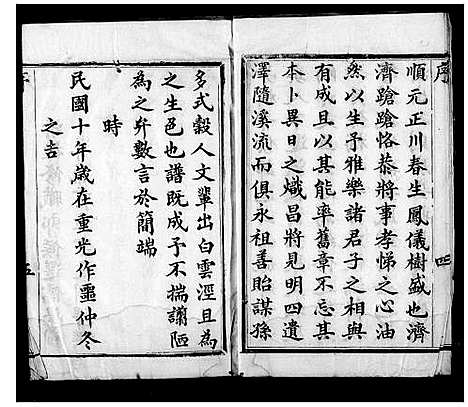 序 四
順元正川春生鳳儀樹盛也濟
濟蹌蹌恪恭將事孝悌之心油
然以生予雅樂諸君子之相與
有成且以其能率舊章不忘其
本卜異日之熾昌將見明四遺
澤隨溪流而俱永祖善貽謀孫
多式穀人文輩出白雲涇且為
之生色也譜既成予不揣譾陋
為之弁數言於簡端
時
民國十年歲在重光作噩仲冬
之吉
五